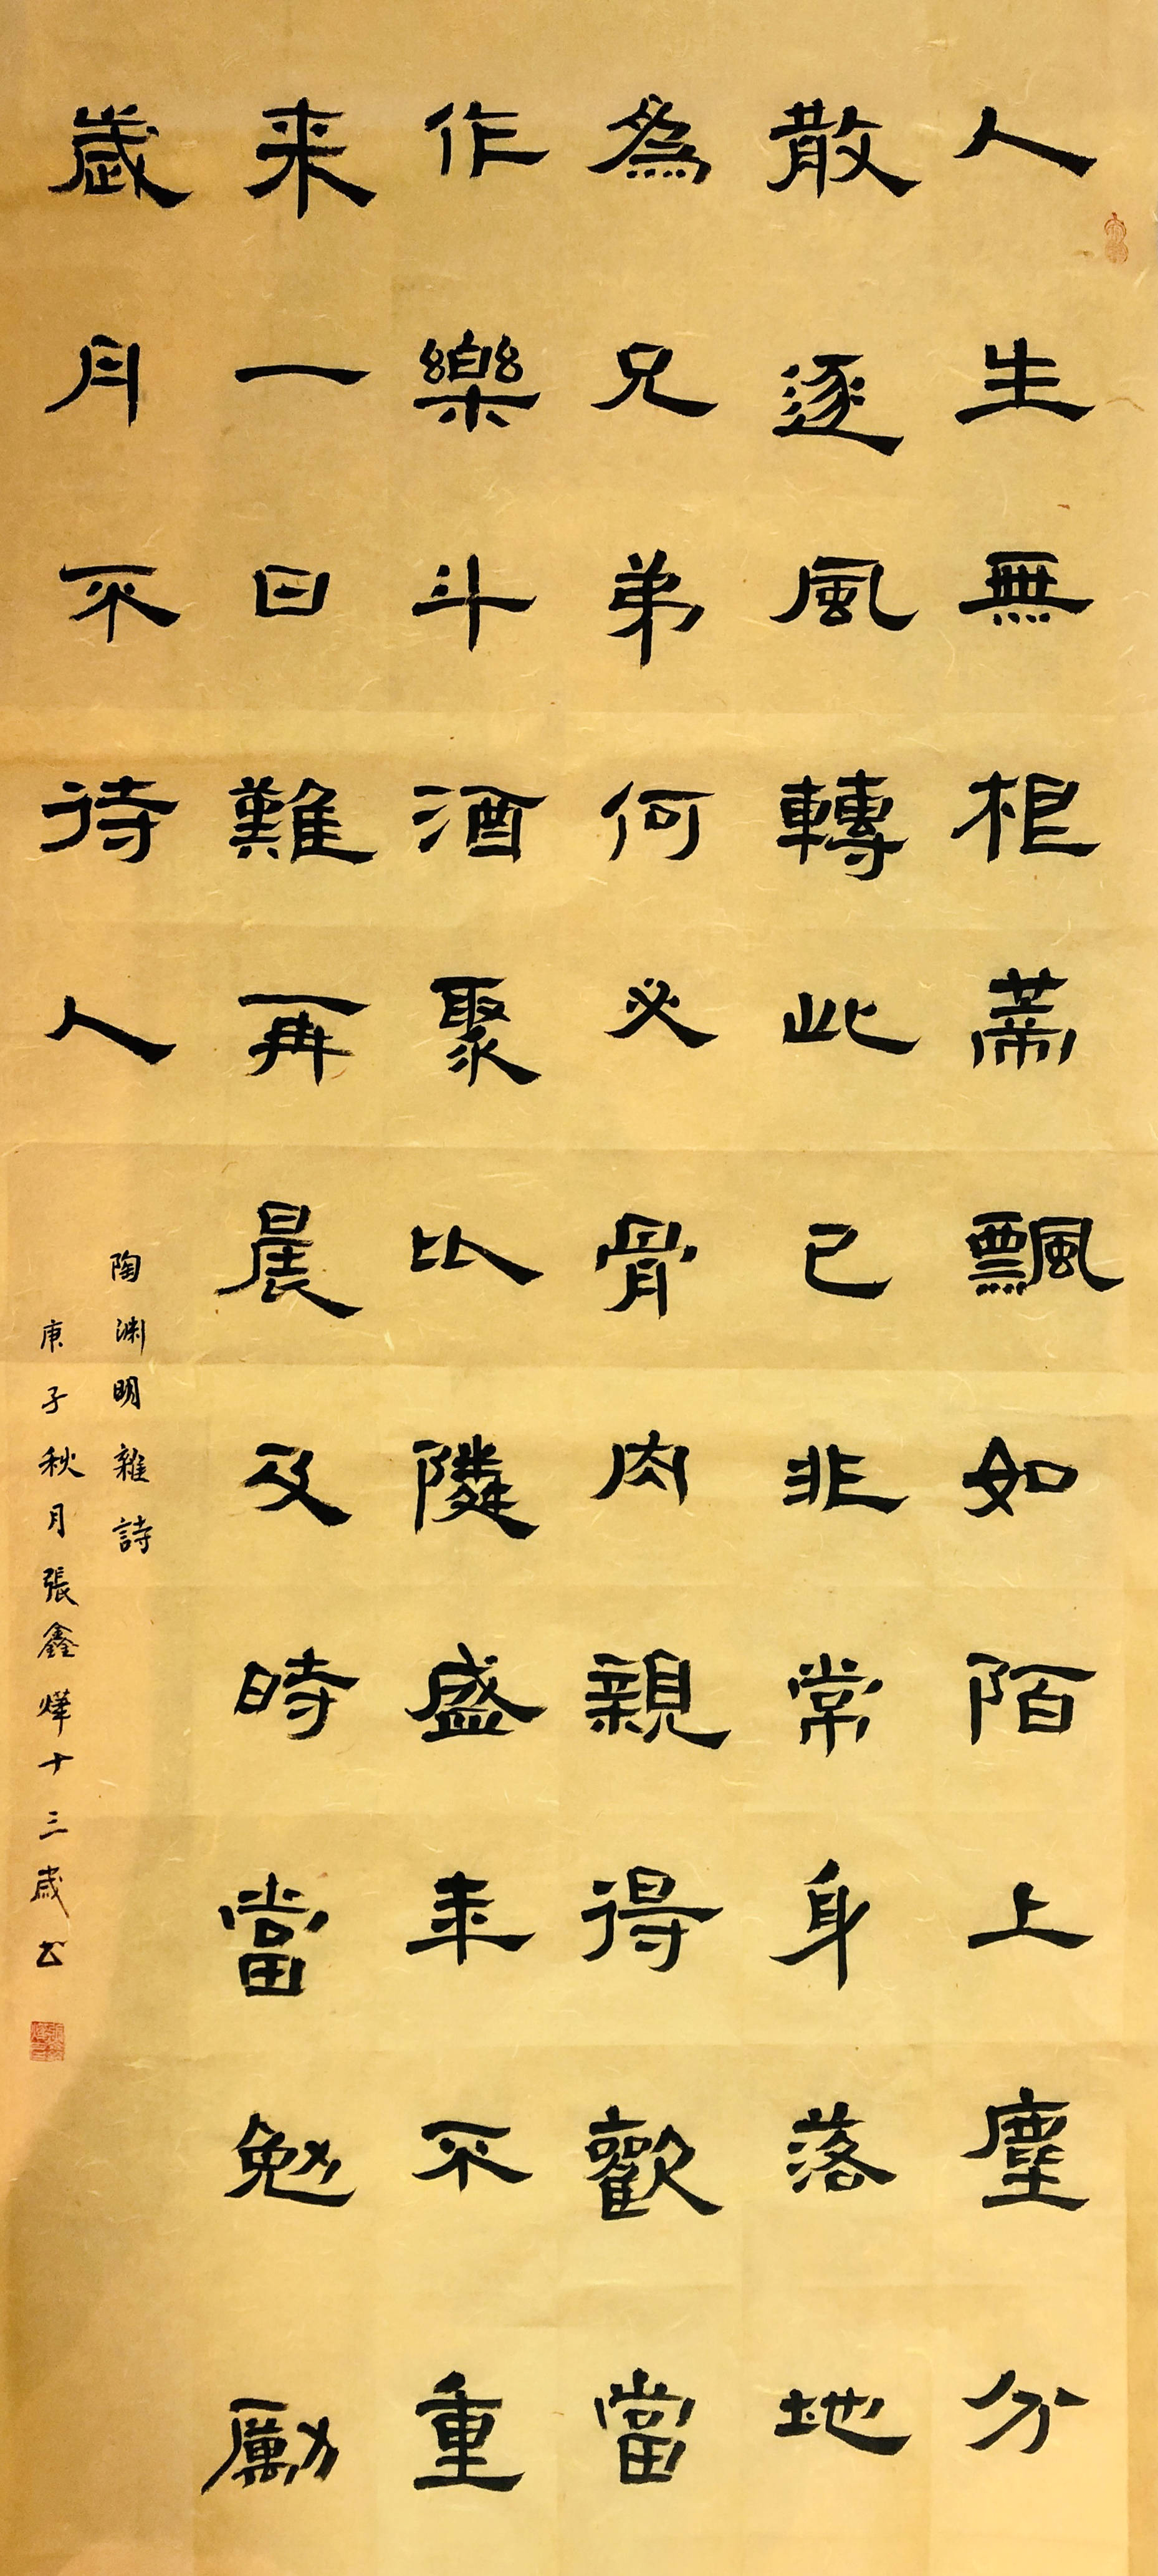 人生無根蒂飄如陌上塵分
散逐風轉此已非常身落地
為兄弟何必骨肉親得歡當
作樂斗酒聚比隣盛年不重
来一日難再晨及時當勉勵
歲月不待人
陶渊明雜詩
庚子秋月張鑫燁十三歲书